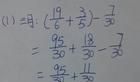 (1) 三月: (19/6 + 3/5) - 7/30
= 95/30 + 18/30 - 7/30
= 95/30 + 11/30